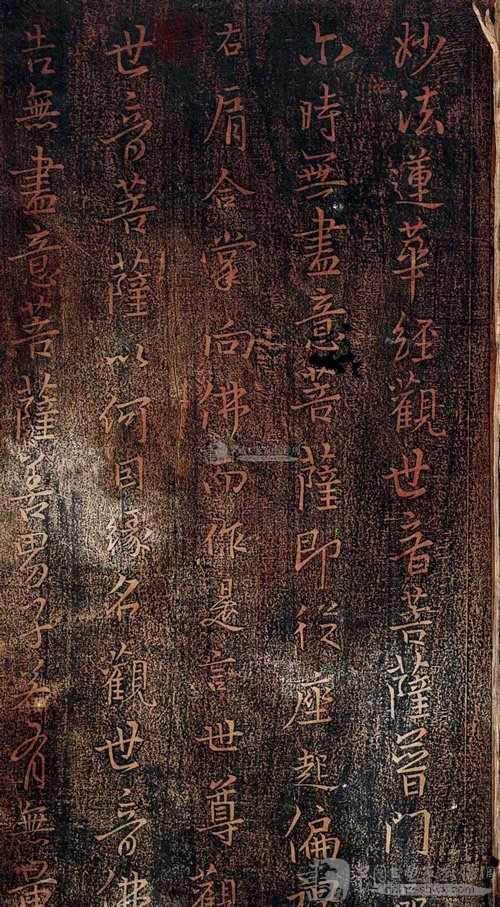 妙法蓮華經觀世音菩薩普門
尒時無盡意菩薩即從座起偏
右肩合掌向佛而作是言世尊觀
世音菩薩以何因緣名觀世音佛
告無盡意菩薩善男子若有無量